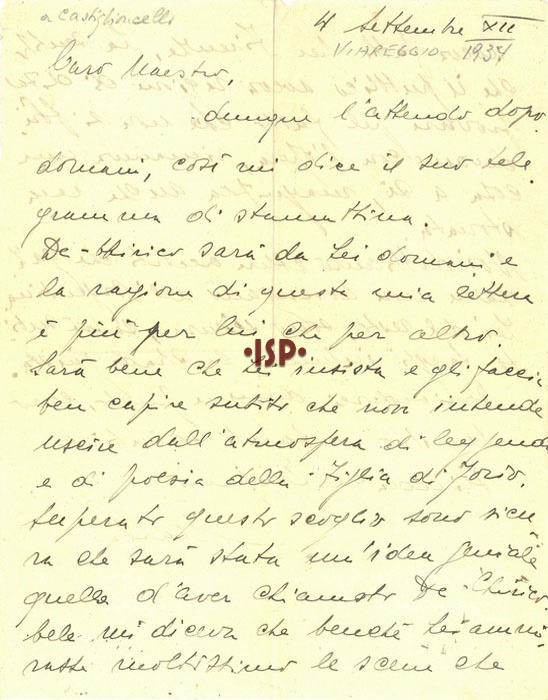 a Castiglioncello
4 Settembre XII
VIAREGGIO 1934
Caro Maestro,
dunque l'attendo dopo
domani, così mi dice il suo tele
gramma di stamattina.
De-Chirico sarà da Lei domani e
la ragione di questa mia lettera
è più per lui che per altro.
•ISP•
Sarà bene che Lei insista e gli faccia
ben capire subito che non intende
uscire dall'atmosfera di leggenda
e di poesia della Figlia di Jorio.
Superato questo scoglio sono sicu
ra che sarà stata un'idea geniale
quella d'aver chiamato De-Chirico
bele mi diceva che benchè Lei ammi
rasse moltissimo le scene che